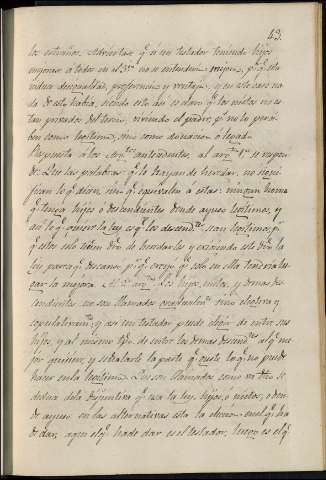 43.
los estraños. Adviertase q.e si un testador teniendo hijos
mejorase a todos en el 3.o no se entenderia mejora, p.r q.e esta
indica desigualdad, preferencia y ventaja, y en este caso na-
da de esto habia, siendo esto asi es claro q.e los nietos no es-
tan privados del tercio, viviendo el padre, p.r no la perci-
ben como lexitima, sino como donacion o legado.
Respuesta á los arg.tos antecedentes, al arg.to 1.o se respon-
de. Que las palabras q.e lo hayan de heredar, no signi-
fican lo q.e dicen, sino q.e equivalen á estas: ningun home
q.e tenga hijos ó descendientes donde aquea lexitimos, y
asi lo q.e quiere la ley es q.e los descend.tes sean lexitimos, p.r
q.e estos solo tienen dro. de heredarle y exijiendo este dro. la
ley parece q.e descansa p.r q.e creyó q.e solo en ella tendria lu-
gar la mejora. Al 2.o arg.to los hijos, nietos, y demas des-
cendientes no son llamados sino electiva y
copulativam.te, y asi un testador puede elejir de entre sus
hijos, y al mismo tpo. de entre los demas descend.tes al q.e me-
jor quisiere, y señalarle la parte q.e guste lo q.e no puede
hacer en la lexitima. Que son llamados como va dho. se
deduce dela disjuntiva q.e usa la ley, hijos, ó nietos, ó den-
de ayuso en las alternativas esta la eleccion en el q.e ha
de dar, aqui el q.e ha de dar es el testador, luego es el q.e